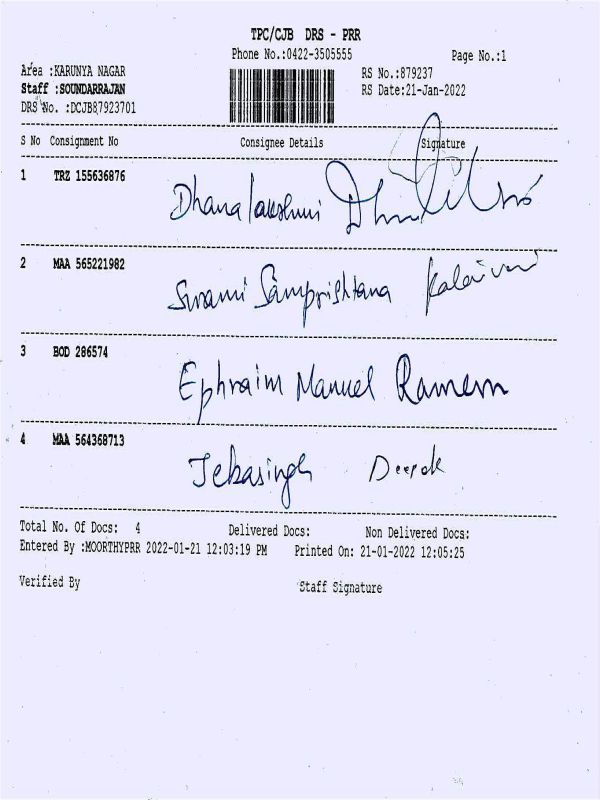 TPC/CJB DRS - PRR
Phone No.:0422-3505555 Page No.:1
Area :KARUNYA NAGAR RS No.:879237
Staff :SOUNDARRAJAN RS Date:21-Jan-2022
DRS No. :DCJB87923701
S No Consignment No Consignee Details Signature
1 TRZ 155636876
Dhanalakshmi
2 MAA 565221982
Swami Samprishtana Kalaivani
3 BOD 286574
Ephraim Manuel
4 MAA 564368713
Jebasingh Deepak
Total No. Of Docs: 4 Delivered Docs: Non Delivered Docs:
Entered By :MOORTHYPRR 2022-01-21 12:03:19 PM Printed On: 21-01-2022 12:05:25
Verified By Staff Signature